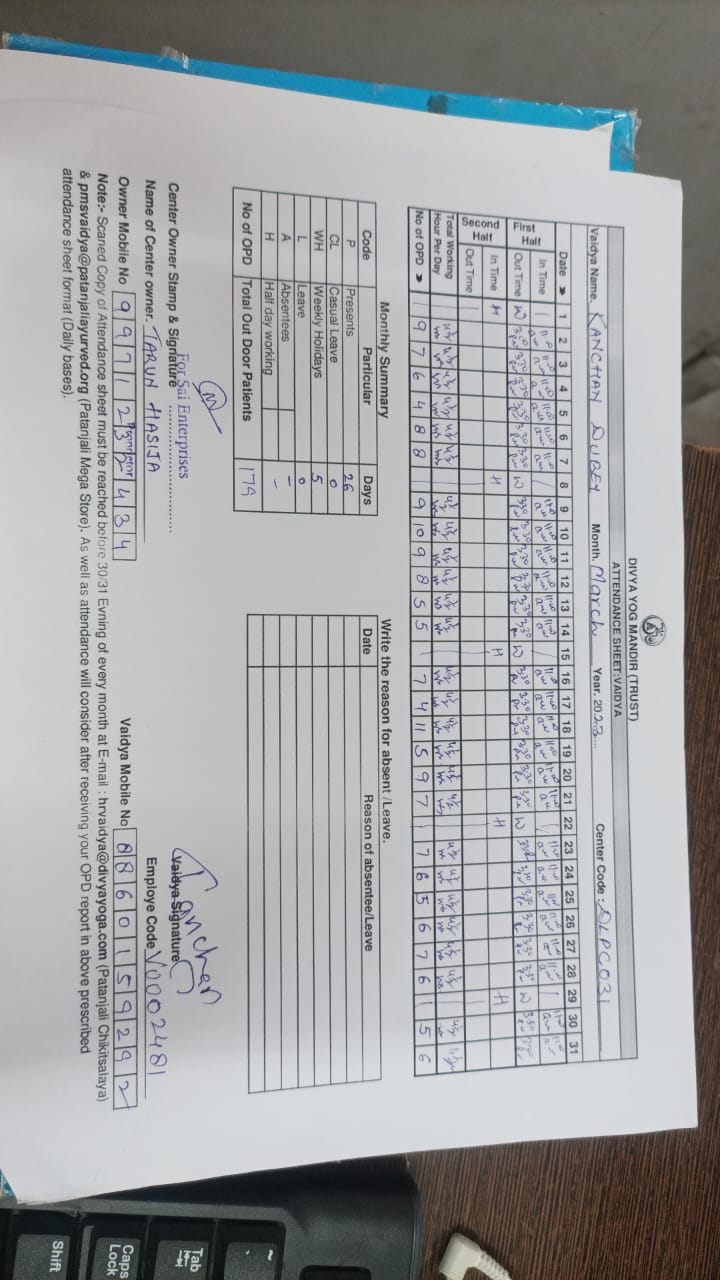 DIVYA YOG MANDIR (TRUST)
ATTENDANCE SHEET:VAIDYA
Vaidya Name. KANCHAN DUBEY Month. March Year. 2023.... Center Code : DLPC031
Date 1 2 3 4 5 6 7 8 9 10 11 12 13 14 15 16 17 18 19 20 21 22 23 24 25 26 27 28 29 30 31
First Half
In Time 11:00 am 11:00 am 11:00 am 11:00 am 11:00 am 11:00 am 11:00 am 11:00 am 11:00 am 11:00 am 11:00 am 11:00 am 11:00 am 11:00 am 11:00 am 11:00 am 11:00 am 11:00 am 11:00 am 11:00 am 11:00 am 11:00 am 11:00 am 11:00 am 11:00 am 11:00 am
Out Time W 3:30 pm 3:30 pm 3:30 pm 3:30 pm 3:30 pm 3:30 pm W 3:30 pm 3:30 pm 3:30 pm 3:30 pm 3:30 pm 3:30 pm W 3:30 pm 3:30 pm 3:30 pm 3:30 pm 3:30 pm 3:30 pm W 3:30 pm 3:30 pm 3:30 pm 3:30 pm 3:30 pm 3:30 pm W 3:30 pm 3:30 pm
Second Half
In Time H H H H H
Out Time
Total Working Hour Per Day 4½ hrs 4½ hrs 4½ hrs 4½ hrs 4½ hrs 4½ hrs 4½ hrs 4½ hrs 4½ hrs 4½ hrs 4½ hrs 4½ hrs 4½ hrs 4½ hrs 4½ hrs 4½ hrs 4½ hrs 4½ hrs 4½ hrs 4½ hrs 4½ hrs 4½ hrs 4½ hrs 4½ hrs 4½ hrs 4½ hrs
No of OPD 9 7 6 4 8 8 9 10 9 8 5 5 7 4 11 5 9 7 7 6 5 6 7 6 5 6
Monthly Summary
Code Particular Days
P Presents 26
CL Casual Leave 0
WH Weekly Holidays 5
L Leave 0
A Absentees –
H Half day working –
No of OPD Total Out Door Patients 179
Write the reason for absent /Leave.
Date Reason of absentee/Leave
For Sai Enterprises
Center Owner Stamp & Signature ................................
Name of Center owner. TARUN HASIJA
Proprietor
Owner Mobile No 9971232434
Kanchan
Vaidya Signature
Employe Code V0002481
Vaidya Mobile No 8860159292
Note:- Scaned Copy of Attendance sheet must be reached before 30/31 Evning of every month at E-mail : hrvaidya@divyayoga.com (Patanjali Chikitsalaya)
& pmsvaidya@patanjaliayurved.org (Patanjali Mega Store). As well as attendance will consider after receiving your OPD report in above prescribed
attendance sheet format (Daily bases).
~
Tab
Caps Lock
Shift